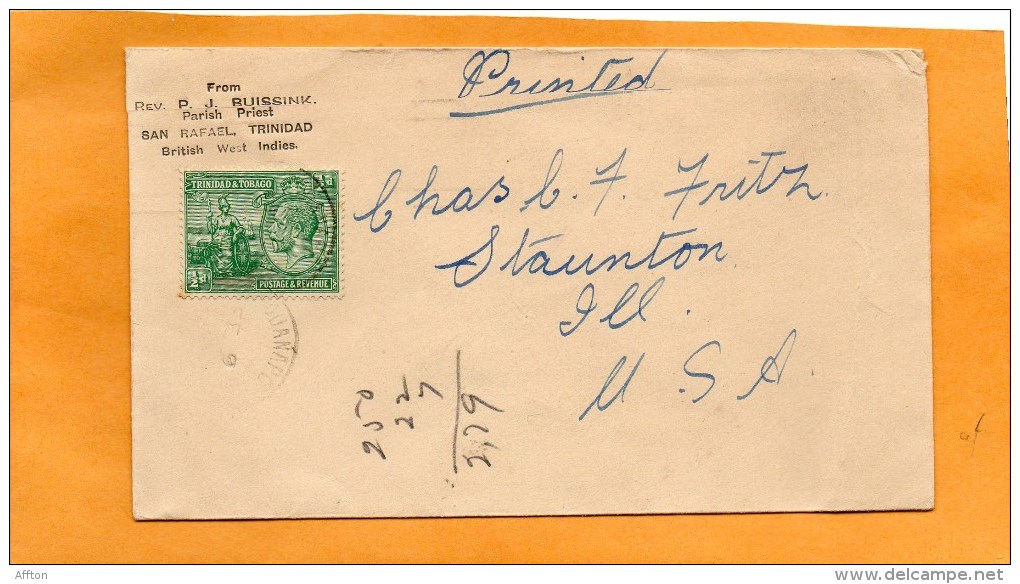 From
REV. P. J. BUISSINK.
Parish Priest
SAN RAFAEL, TRINIDAD
British West Indies.
Printed
TRINIDAD & TOBAGO
½d
POSTAGE & REVENUE
Chas C. F. Fritz
Staunton
Ill.
U. S. A.
250
22
7
2,79
Affton
www.delcampe.net